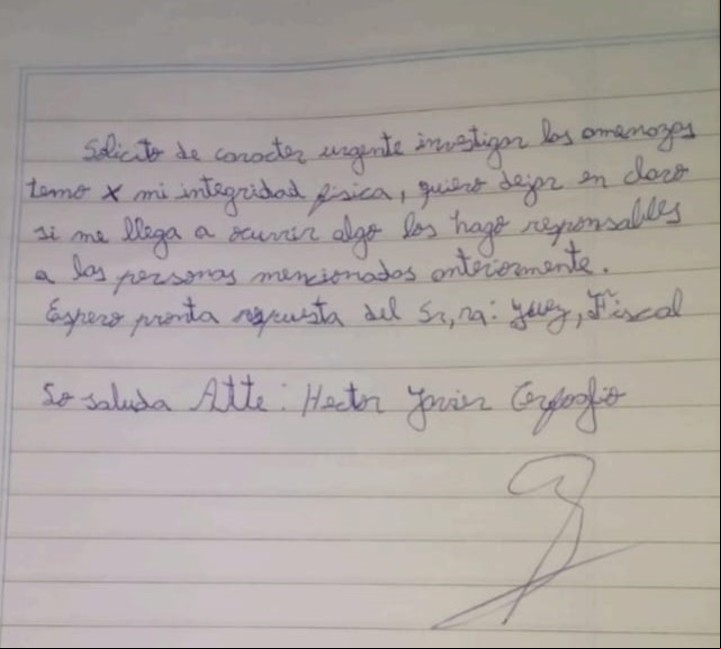 Solicito de caracter urgente investigar las amenazas
temo x mi integridad fisica, quiero dejar en claro
si me llega a ocurrir algo los hago responsables
a las personas mencionadas anteriormente.
Espero pronta repuesta del Sr, ra: Juez, Fiscal
Lo saluda Atte: Hector Javier